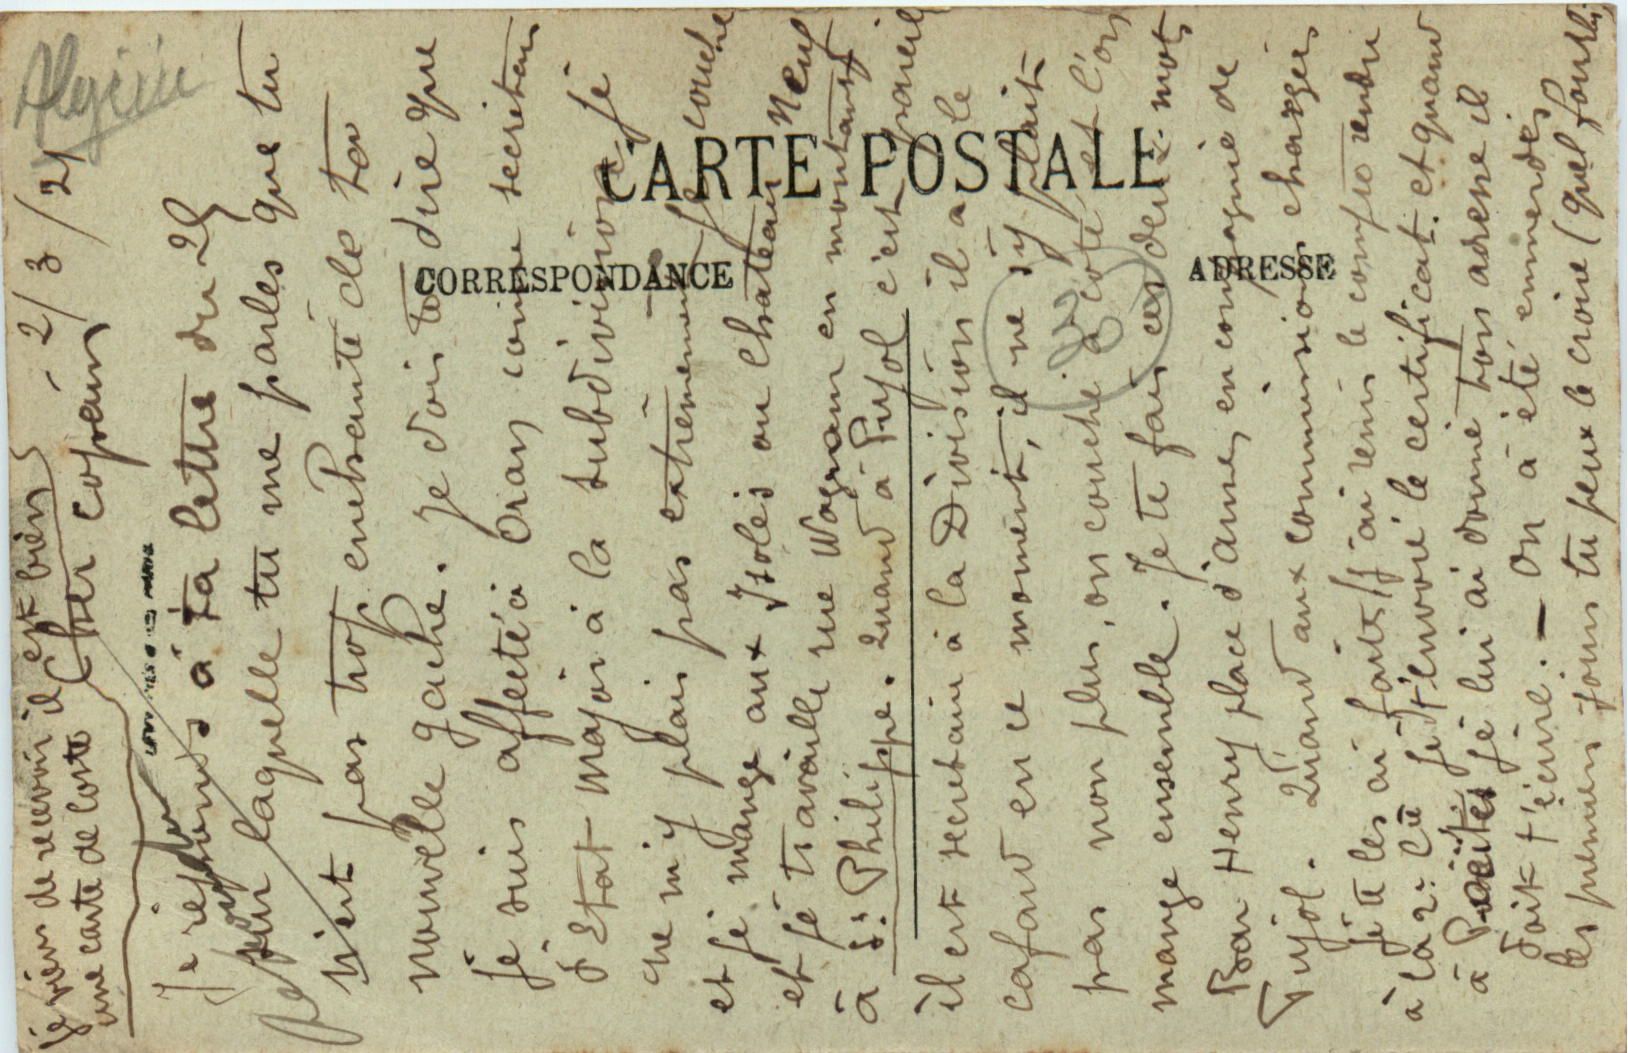 Algérie
CARTE POSTALE
CORRESPONDANCE
ADRESSE
35
je viens de recevoir il est bien
une carte de Coste
2/3/21
Cher copain
Je réponds à ta lettre du 25
par laquelle tu me parles que tu
n'est pas trop enchanté de ta
nouvelle gache. Je dois te dire que
je suis affecté à Oran comme secrétaire
d'Etat major à la subdivision, je
ne m'y plais pas extrêmement, je couche
et je mange aux Isolés au Chateau Neuf
et je travaille rue Wagram en montant
à St Philippe. Quand à Pujol c'est pareil
il est secretaire à la Division il a le
cafard en ce moment, il ne s'y plait
pas non plus, on couche à coté et l'on
mange ensemble. Je te fais ces deux mots
Bar Henry place d'armes en compagnie de
Pujol. Quand aux commissions chargées
je te les ai faites j'ai remis le compte rendu
à la 2e Cie je t'envoie le certificat. et quand
à je lui ai donné ton adresse il
doit t'écrire. — On à été emmerdés
les premiers jours tu peux le croire (quel fourbi